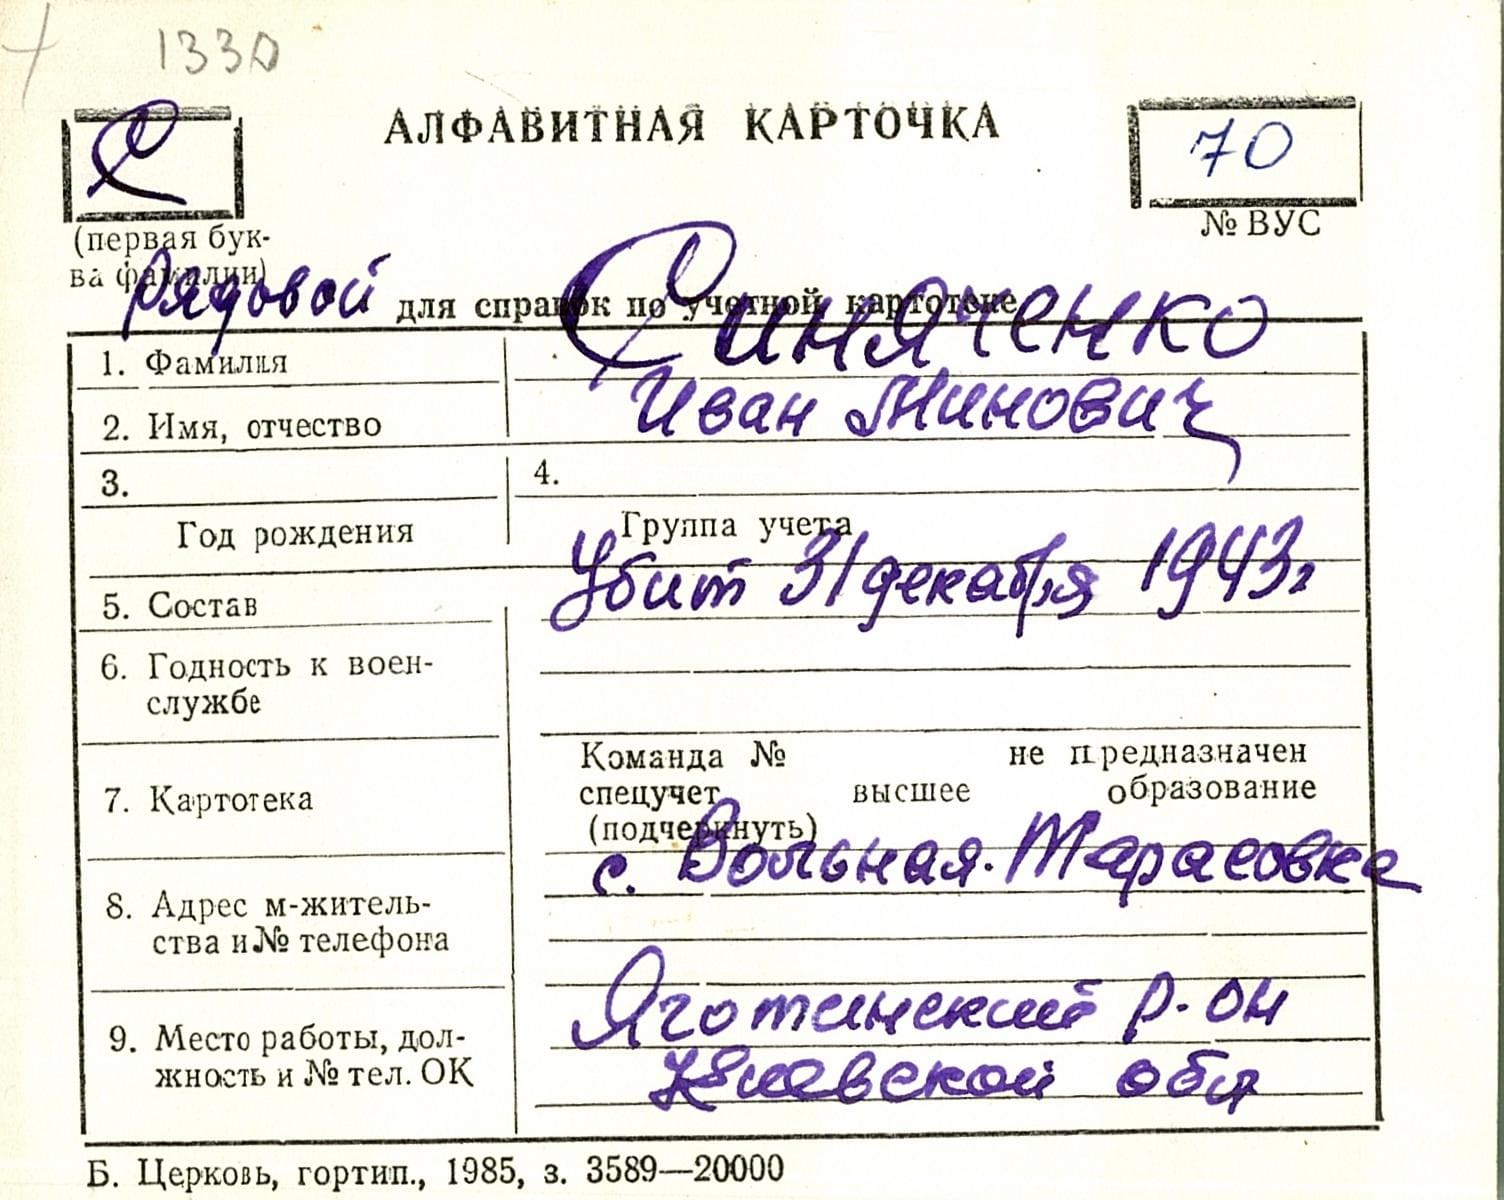 1330
С
АЛФАВИТНАЯ КАРТОЧКА
70
(первая бук-
ва фамилии)
№ ВУС
Рядовой для справок по учетной картотеке
1. Фамилия Синяченко
2. Имя, отчество Иван Минович
3. 4.
Год рождения Группа учета
5. Состав Убит 31 декабря 1943г
6. Годность к воен-
службе
Команда № не предназначен
7. Картотека спецучет высшее образование
(подчеркнуть)
с. Вольная-Тарасовка
8. Адрес м-житель-
ства и № телефона
Яготинский р-он
9. Место работы, дол-
жность и № тел. ОК Киевской обл
Б. Церковь, гортип., 1985, з. 3589—20000